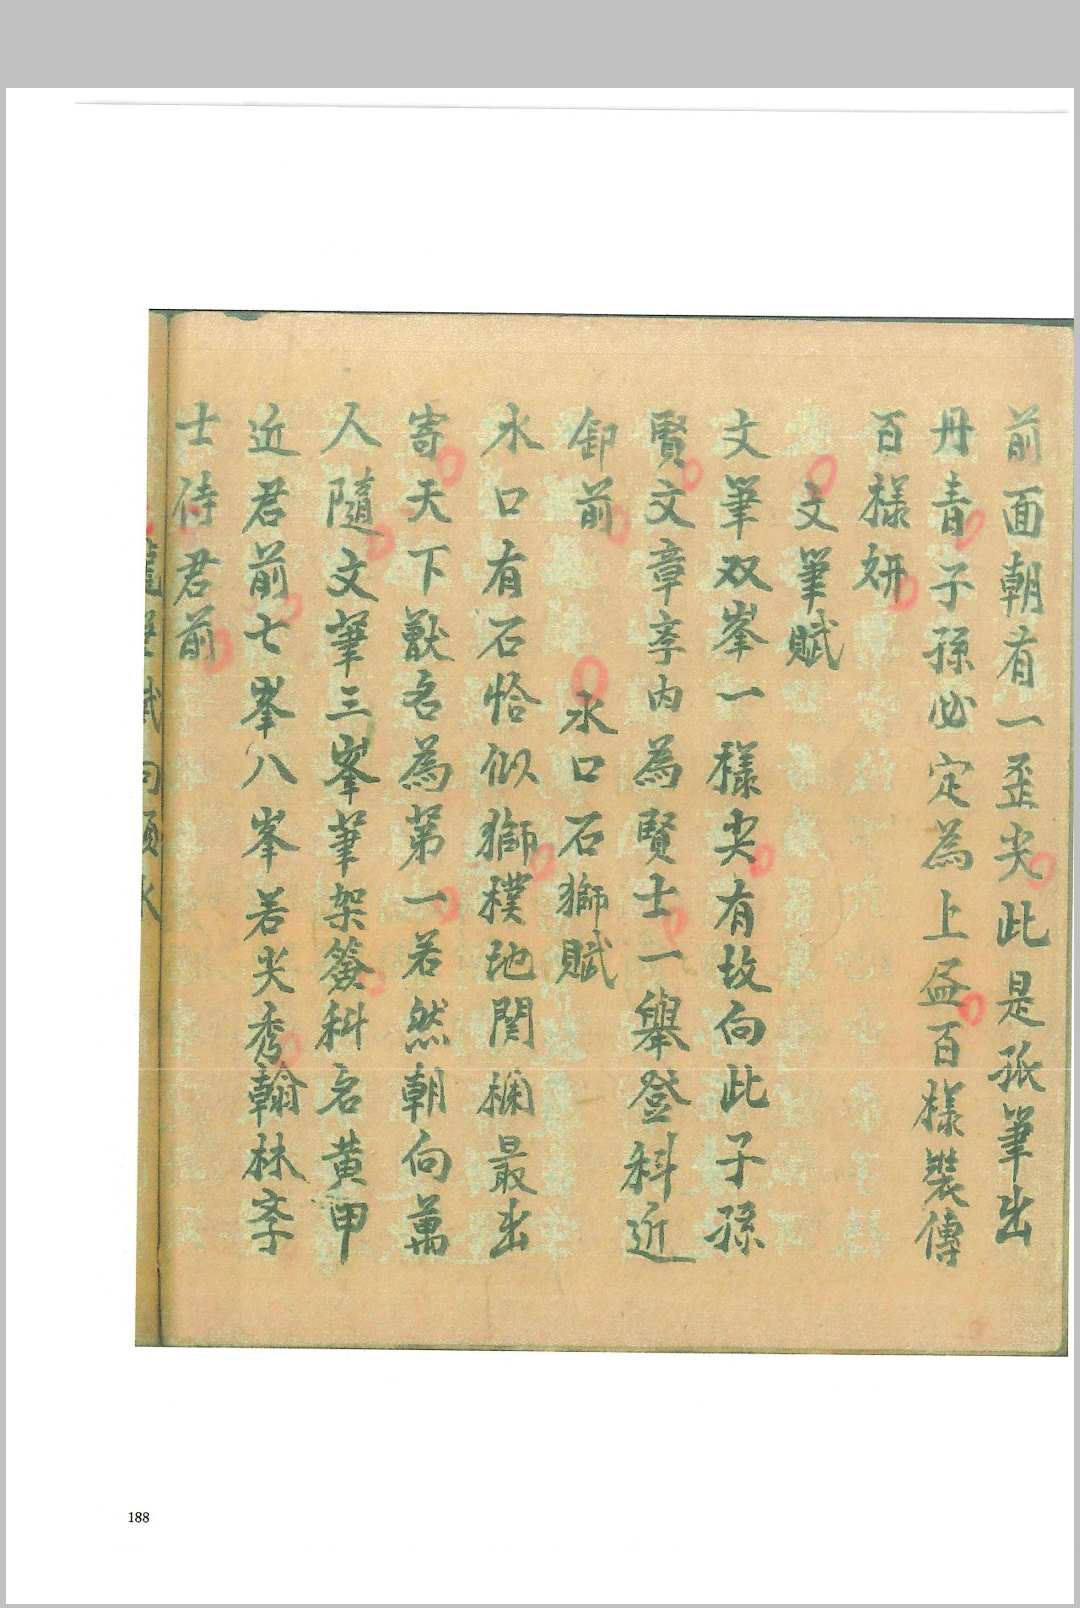 前面朝有一歪尖此是孤筆出
丹青子孫必定為上益百樣裝傳
百樣妍
文筆賦
文筆双峯一樣尖有故向此子孫
賢文章孝内為賢士一舉登科近
卸前
水口石獅賦
水口有石恰似獅樸地関欄最出
寄天下獸名為第一若然朝向萬
人隨文筆三峯筆架簽科名黄甲
近君前七峯八峯若尖秀翰林孝
士侍君前
188